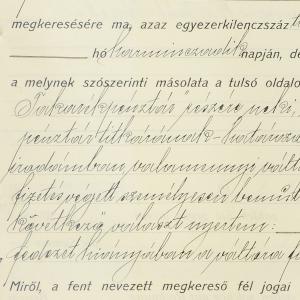 megkeresésére ma, azaz egyezerkilenczszáz
hó harminczadik napján, de
a melynek szószerinti másolata a tulsó oldalo
Takarékpénztár részére neki,
pénztár titkárának
irodámban, valamennyi vált
fizetés végett személyesen bemut
következő választ nyertem:
fedezet hiányában a váltóra fi
Miről, a fent nevezett megkereső fél jogai